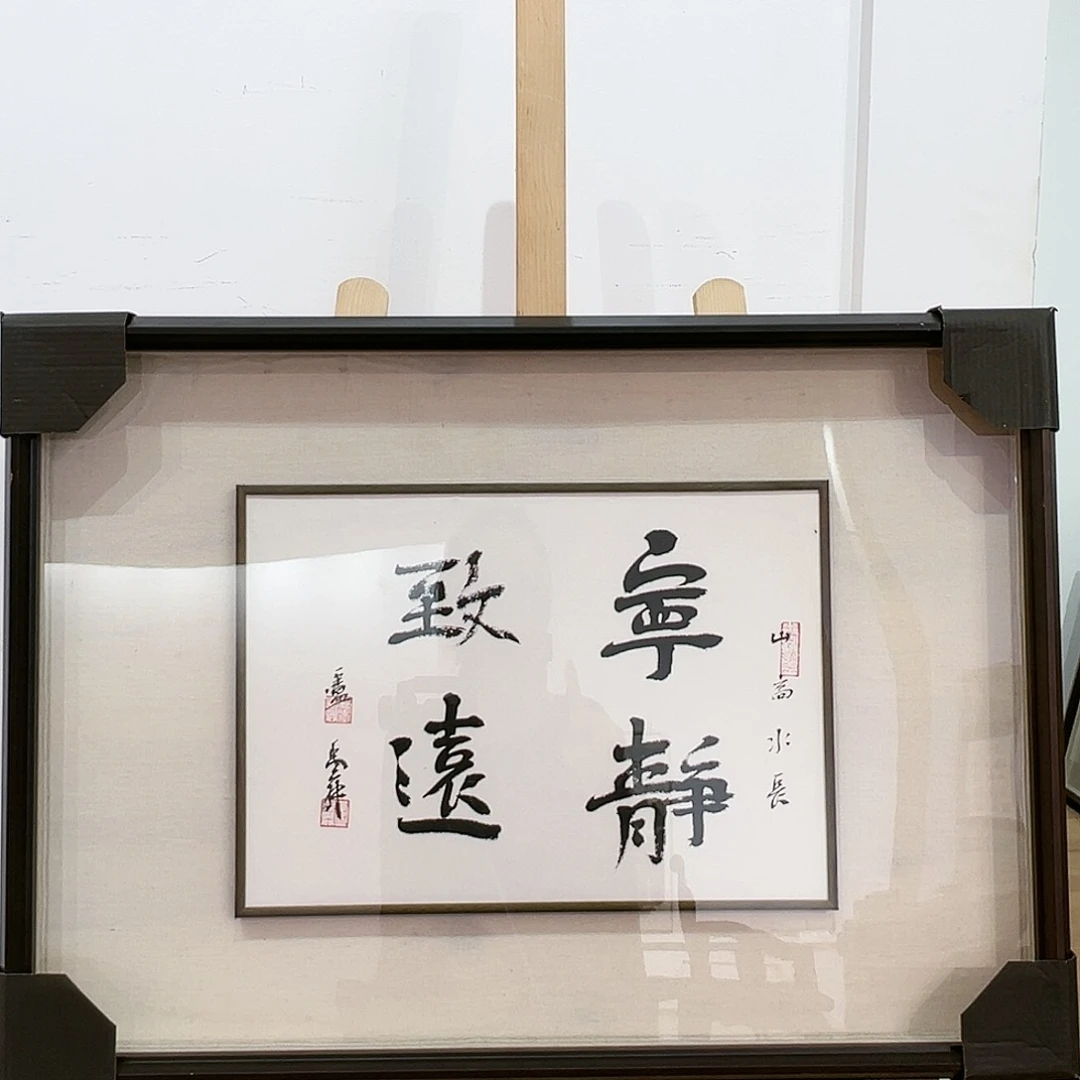 山高水長
寧靜
致遠